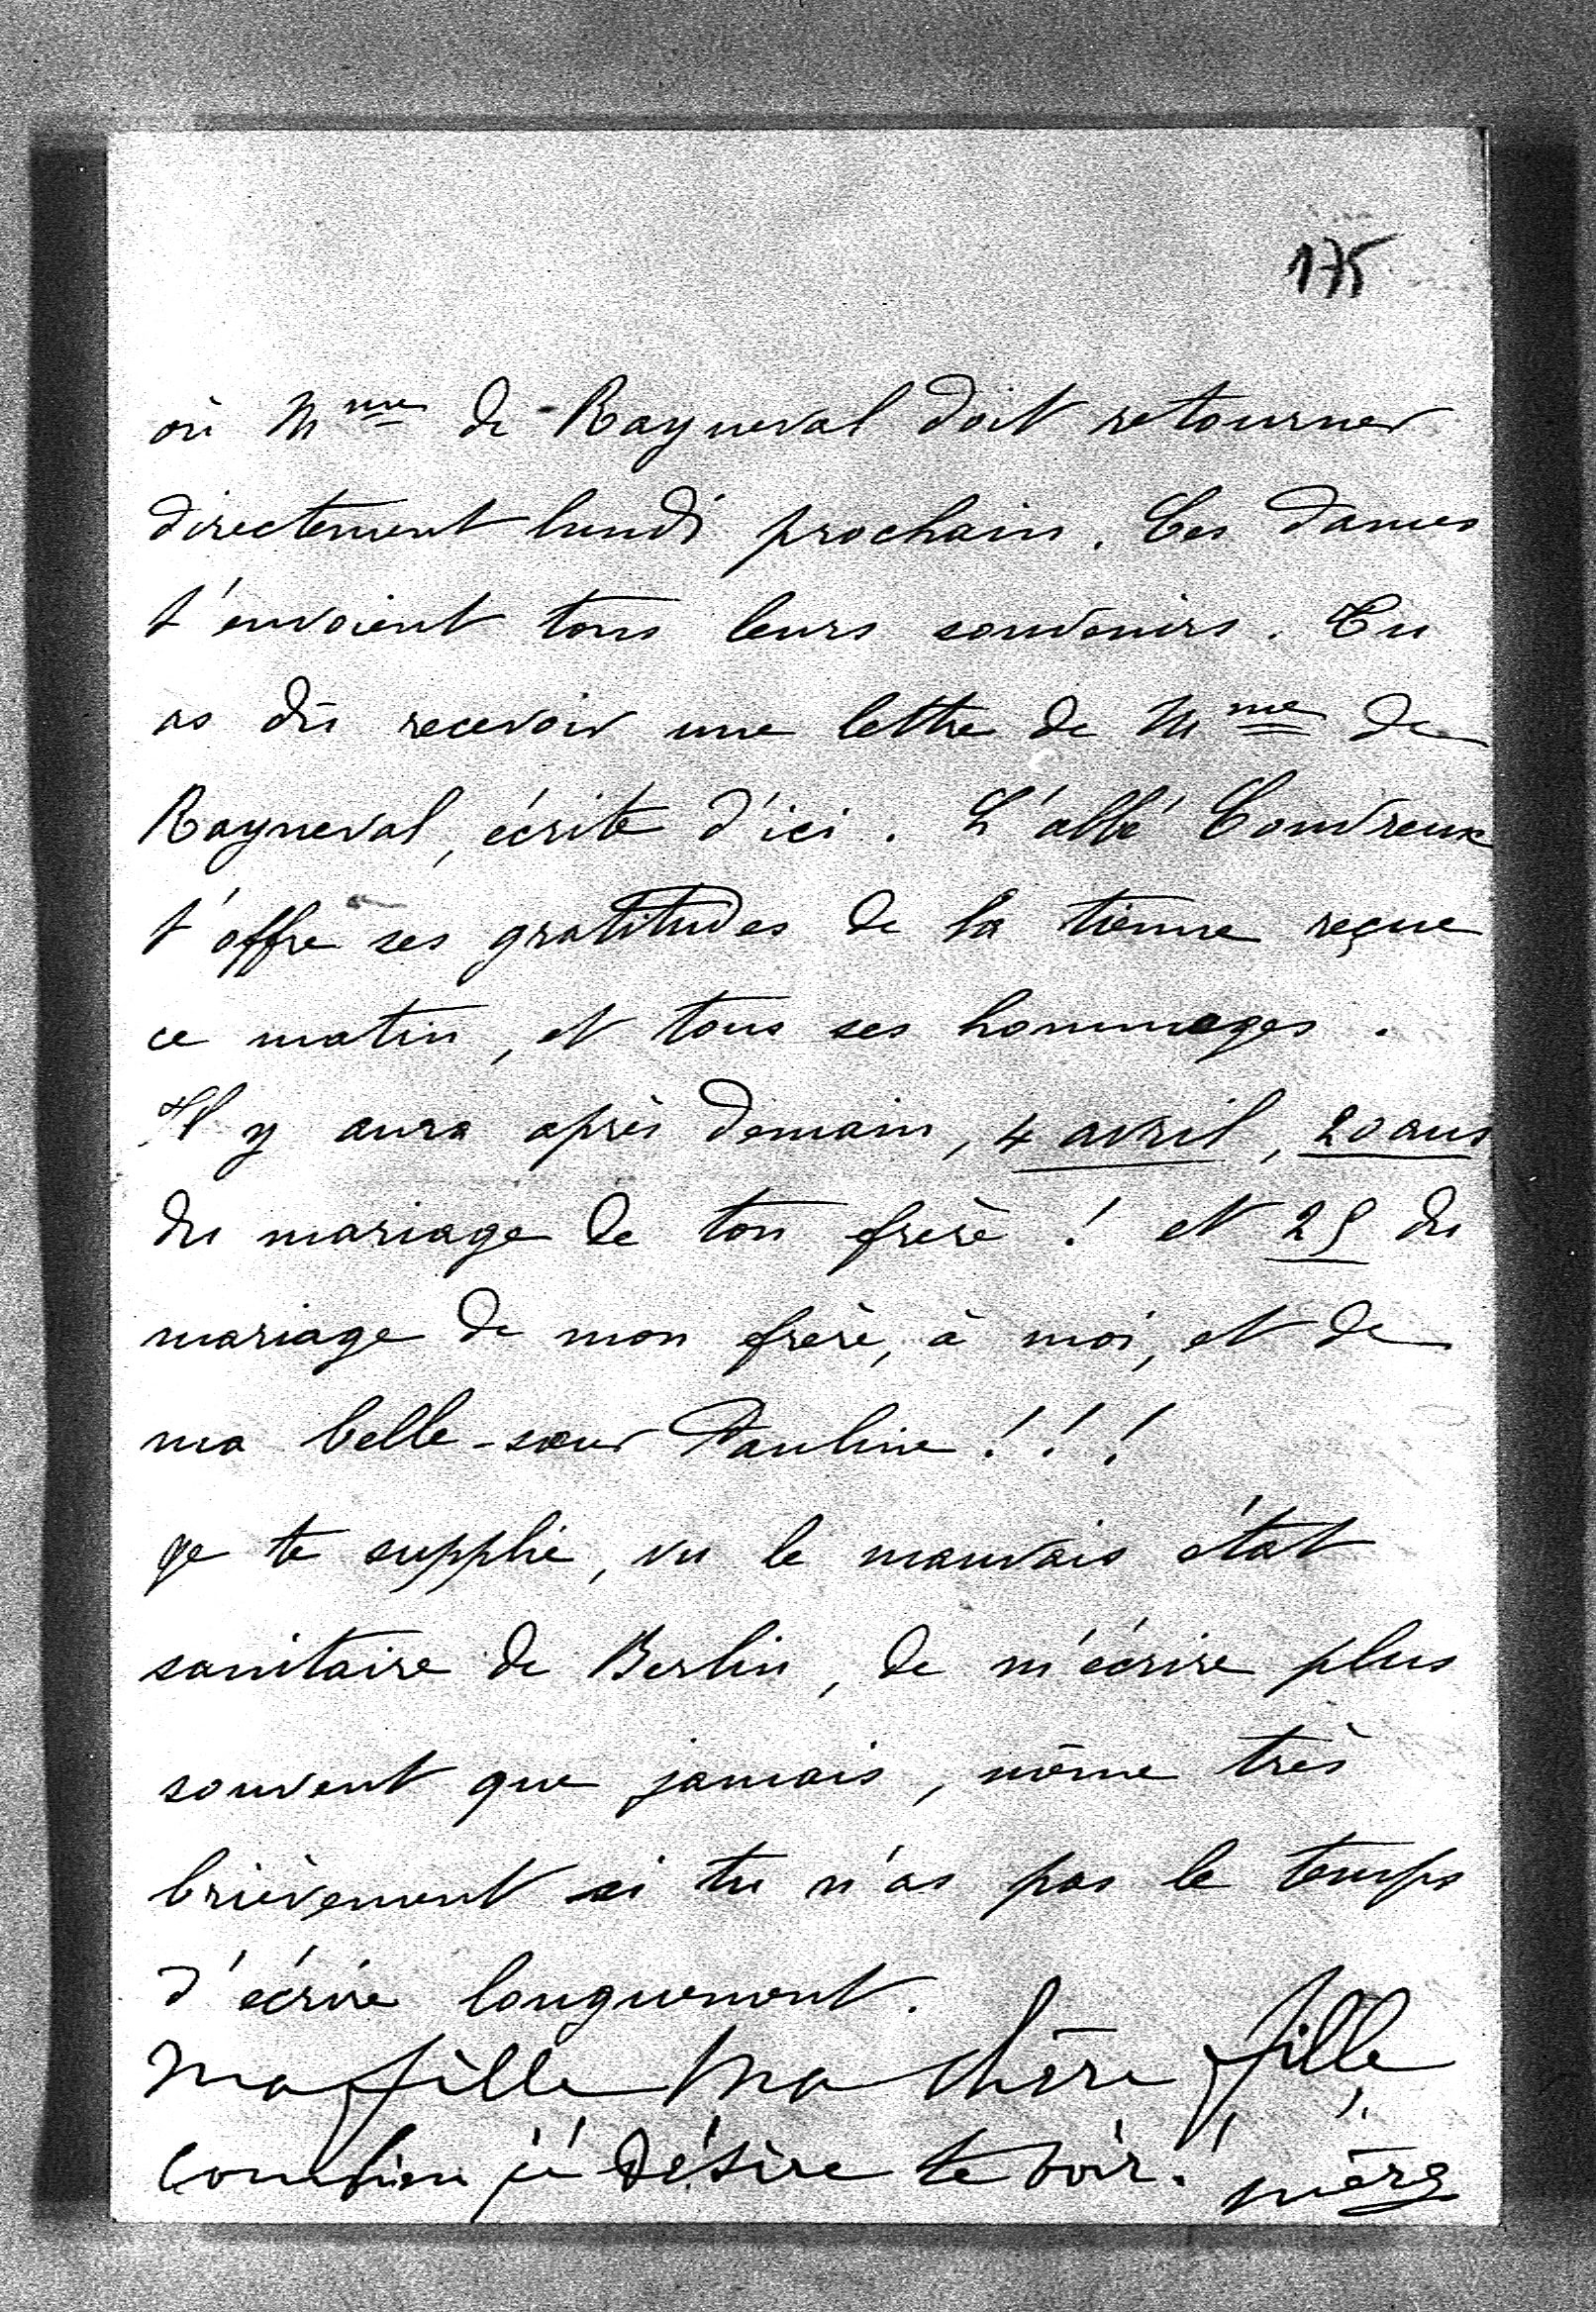 175
où Mme de Rayneval doit retourner
directement lundi prochain. Ces dames
t'envoient tous leurs souvenirs. Tu
as dû recevoir une lettre de Mme de
Rayneval, écrite d'ici. L'abbé Couvreux
t'offre ses gratitudes de la tienne reçue
ce matin, et tous ses hommages.
Il y aura après demain, 4 avril, 20 ans
du mariage de ton frère ! et 25 du
mariage de mon frère, à moi, et de
ma belle-sœur Pauline ! ! !
Je te supplie, vu le mauvais état
sanitaire de Berlin, de m'écrire plus
souvent que jamais, même très
brièvement si tu n'as pas le temps
d'écrire longuement.
Ma fille ma chère fille,
combien je désire te voir ! mère